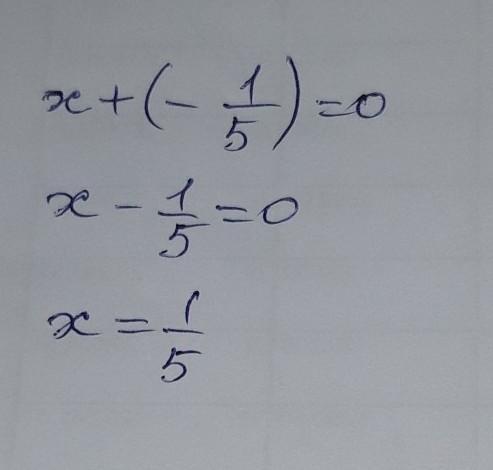 x + (- 1/5) = 0
x - 1/5 = 0
x = 1/5